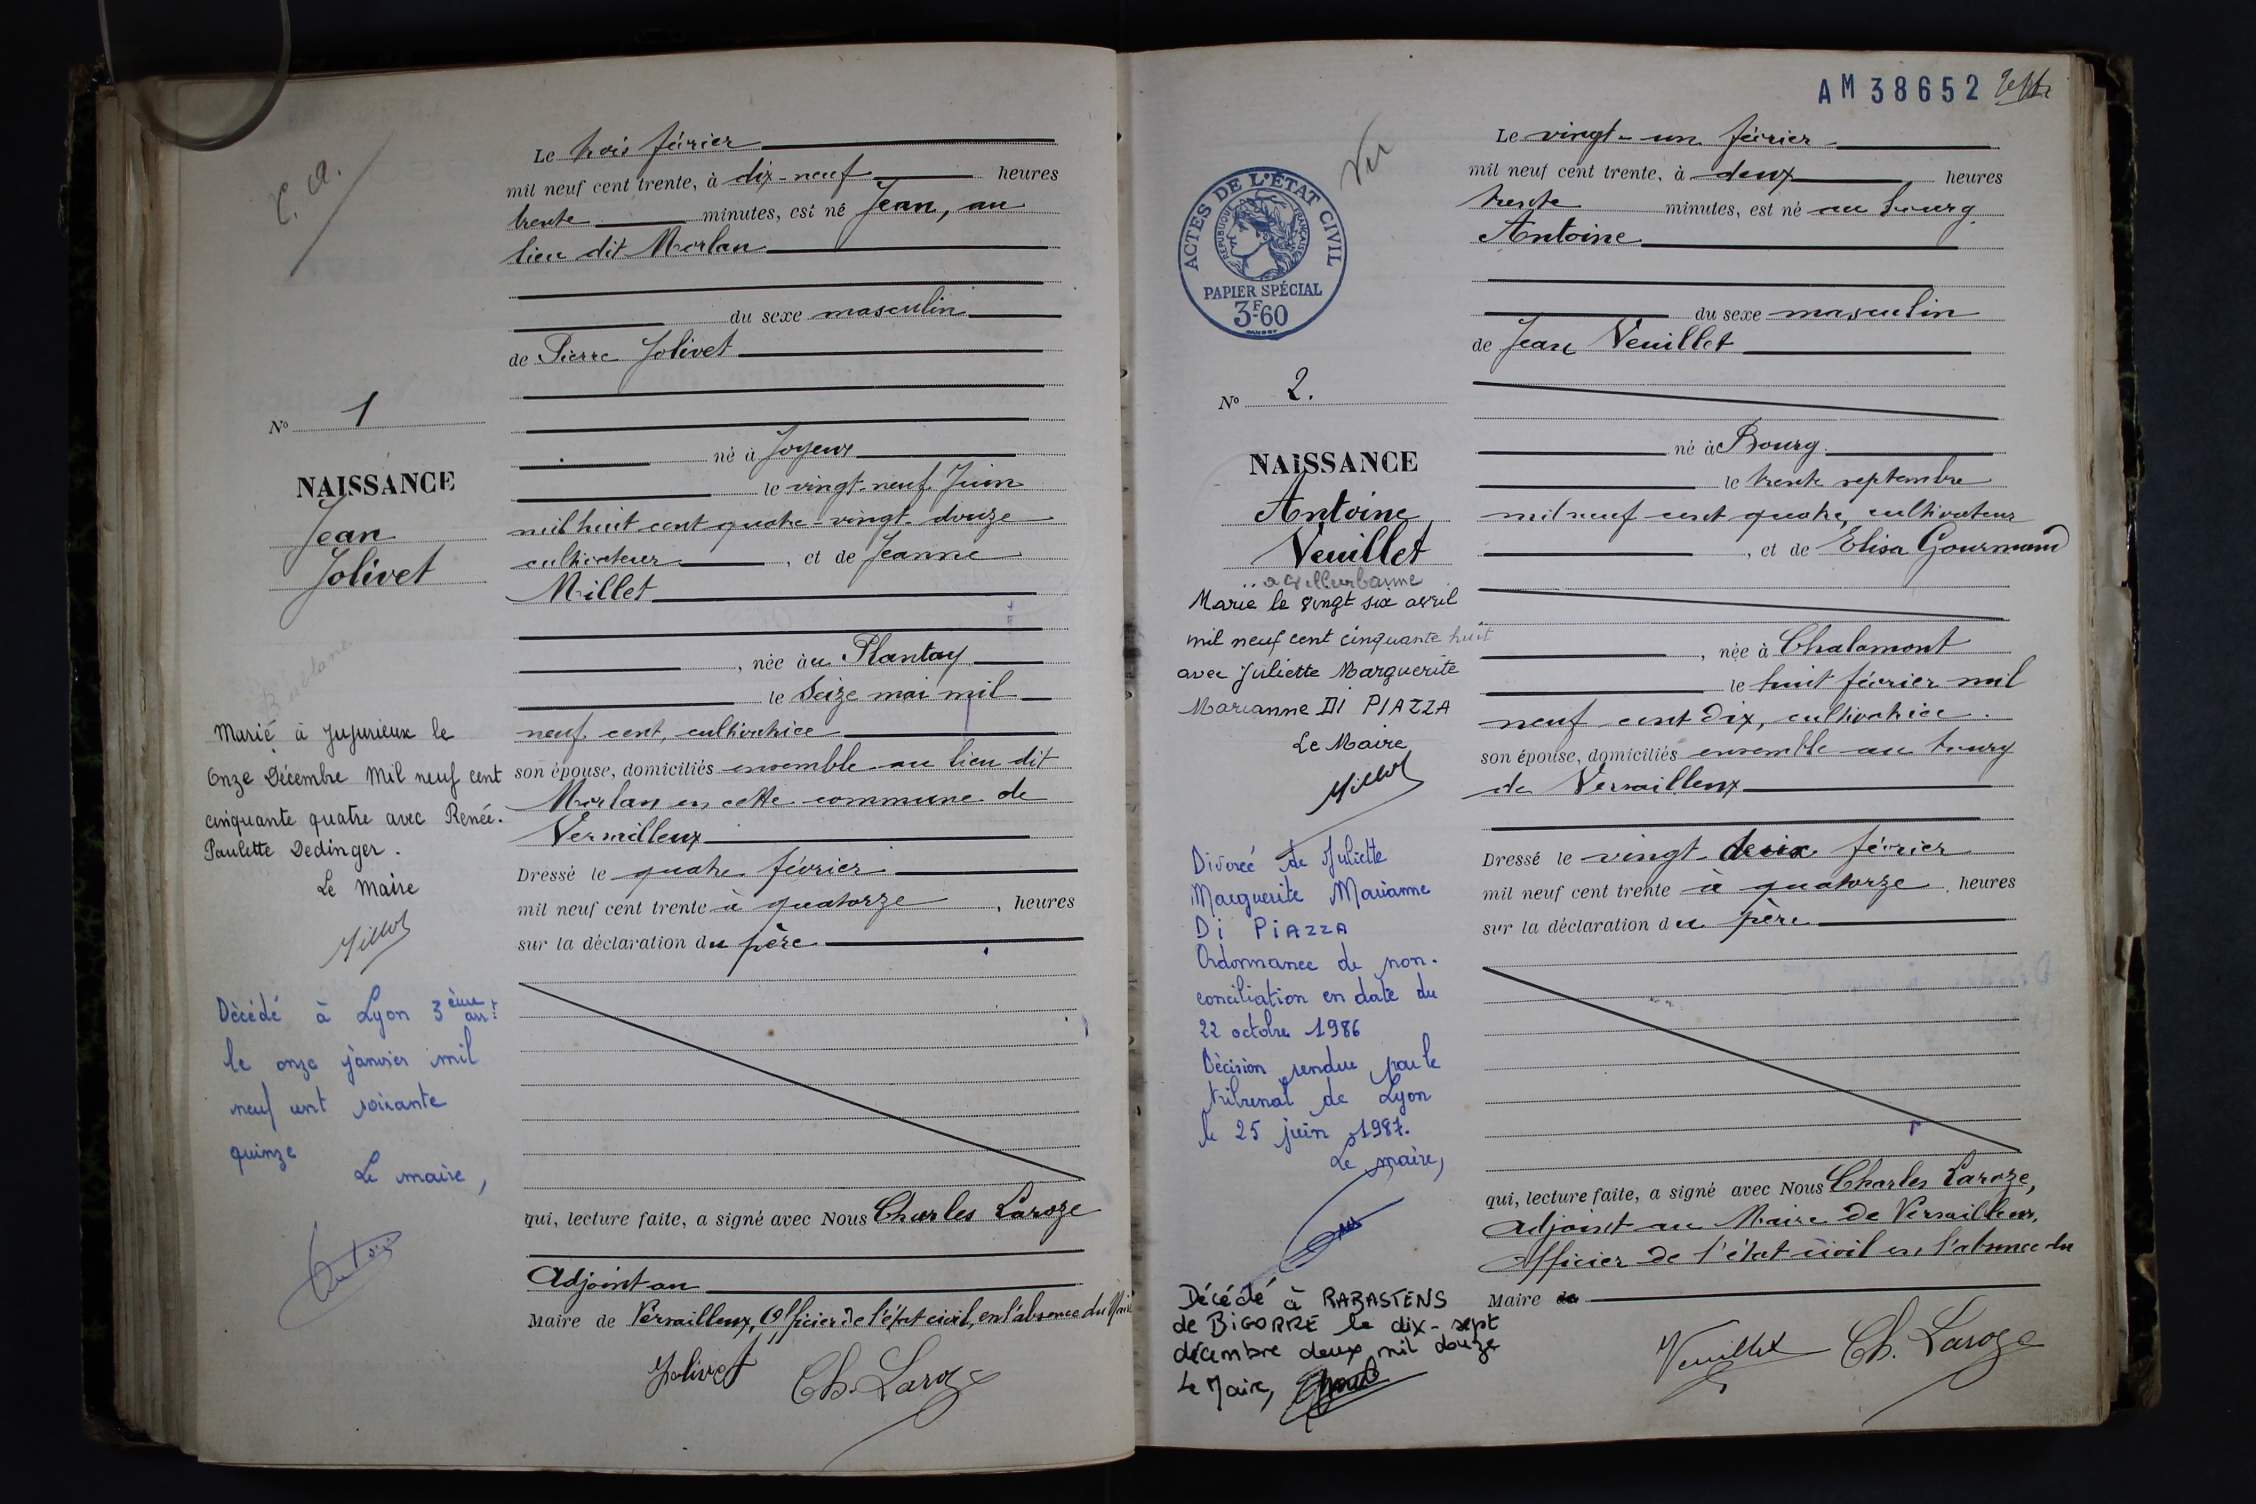 C. A.
Le trois février
mil neuf cent trente, à dix-neuf heures
trente minutes, est né Jean, au
lieu dit Morlan
du sexe masculin
de Pierre Jolivet
né à Joyeux
le vingt-neuf Juin
mil huit cent quatre-vingt-douze
cultivateur, et de Jeanne
Millet
, née au Plantay
le seize mai mil
neuf cent, cultivatrice
son épouse, domiciliés ensemble au lieu dit
Morlan en cette commune de
Versailleux
Dressé le quatre février
mil neuf cent trente à quatorze, heures
sur la déclaration du père
qui, lecture faite, a signé avec Nous Charles Laroze
Adjoint au
Maire de Versailleux, Officier de l'état civil, en l'absence du Maire
Jolivet Ch. Laroze
No 1
NAISSANCE
Jean
Jolivet
Marié à Jujurieux le
Onze Décembre Mil neuf cent
cinquante quatre avec Renée.
Paulette Dedinger.
Le Maire
Millet
Décédé à Lyon 3ème arr:
le onze janvier mil
neuf cent soixante
quinze
Le maire,
AM 38652
Vu
Le vingt-un février
mil neuf cent trente, à deux heures
trente minutes, est né au bourg
Antoine
du sexe masculin
de Jean Veuillet
né à Bourg
le trente septembre
mil neuf cent quatre, cultivateur
, et de Elisa Gourmand
, née à Chalamont
le huit février mil
neuf cent dix, cultivatrice.
son épouse, domiciliés ensemble au bourg
de Versailleux
Dressé le vingt deux février
mil neuf cent trente à quatorze, heures
sur la déclaration du père
qui, lecture faite, a signé avec Nous Charles Laroze,
Adjoint au Maire de Versailleux,
Officier de l'état civil en l'absence du
Maire
Veuillet Ch. Laroze
ACTES DE L'ÉTAT CIVIL
RÉPUBLIQUE FRANÇAISE
PAPIER SPÉCIAL
3F60
No 2.
NAISSANCE
Antoine
Veuillet
à Villeurbanne
Marié le vingt six avril
mil neuf cent cinquante huit
avec Juliette Marguerite
Marianne DI PIAZZA
Le Maire
Millet
Divorcé de Juliette
Marguerite Marianne
Di PiAZZA
Ordonnance de non-
conciliation en date du
22 octobre 1986
Décision rendue par le
tribunal de Lyon
le 25 juin 1987.
Le maire,
Décédé à RABASTENS
de BIGORRE le dix-sept
décembre deux mil douze
Le Maire,